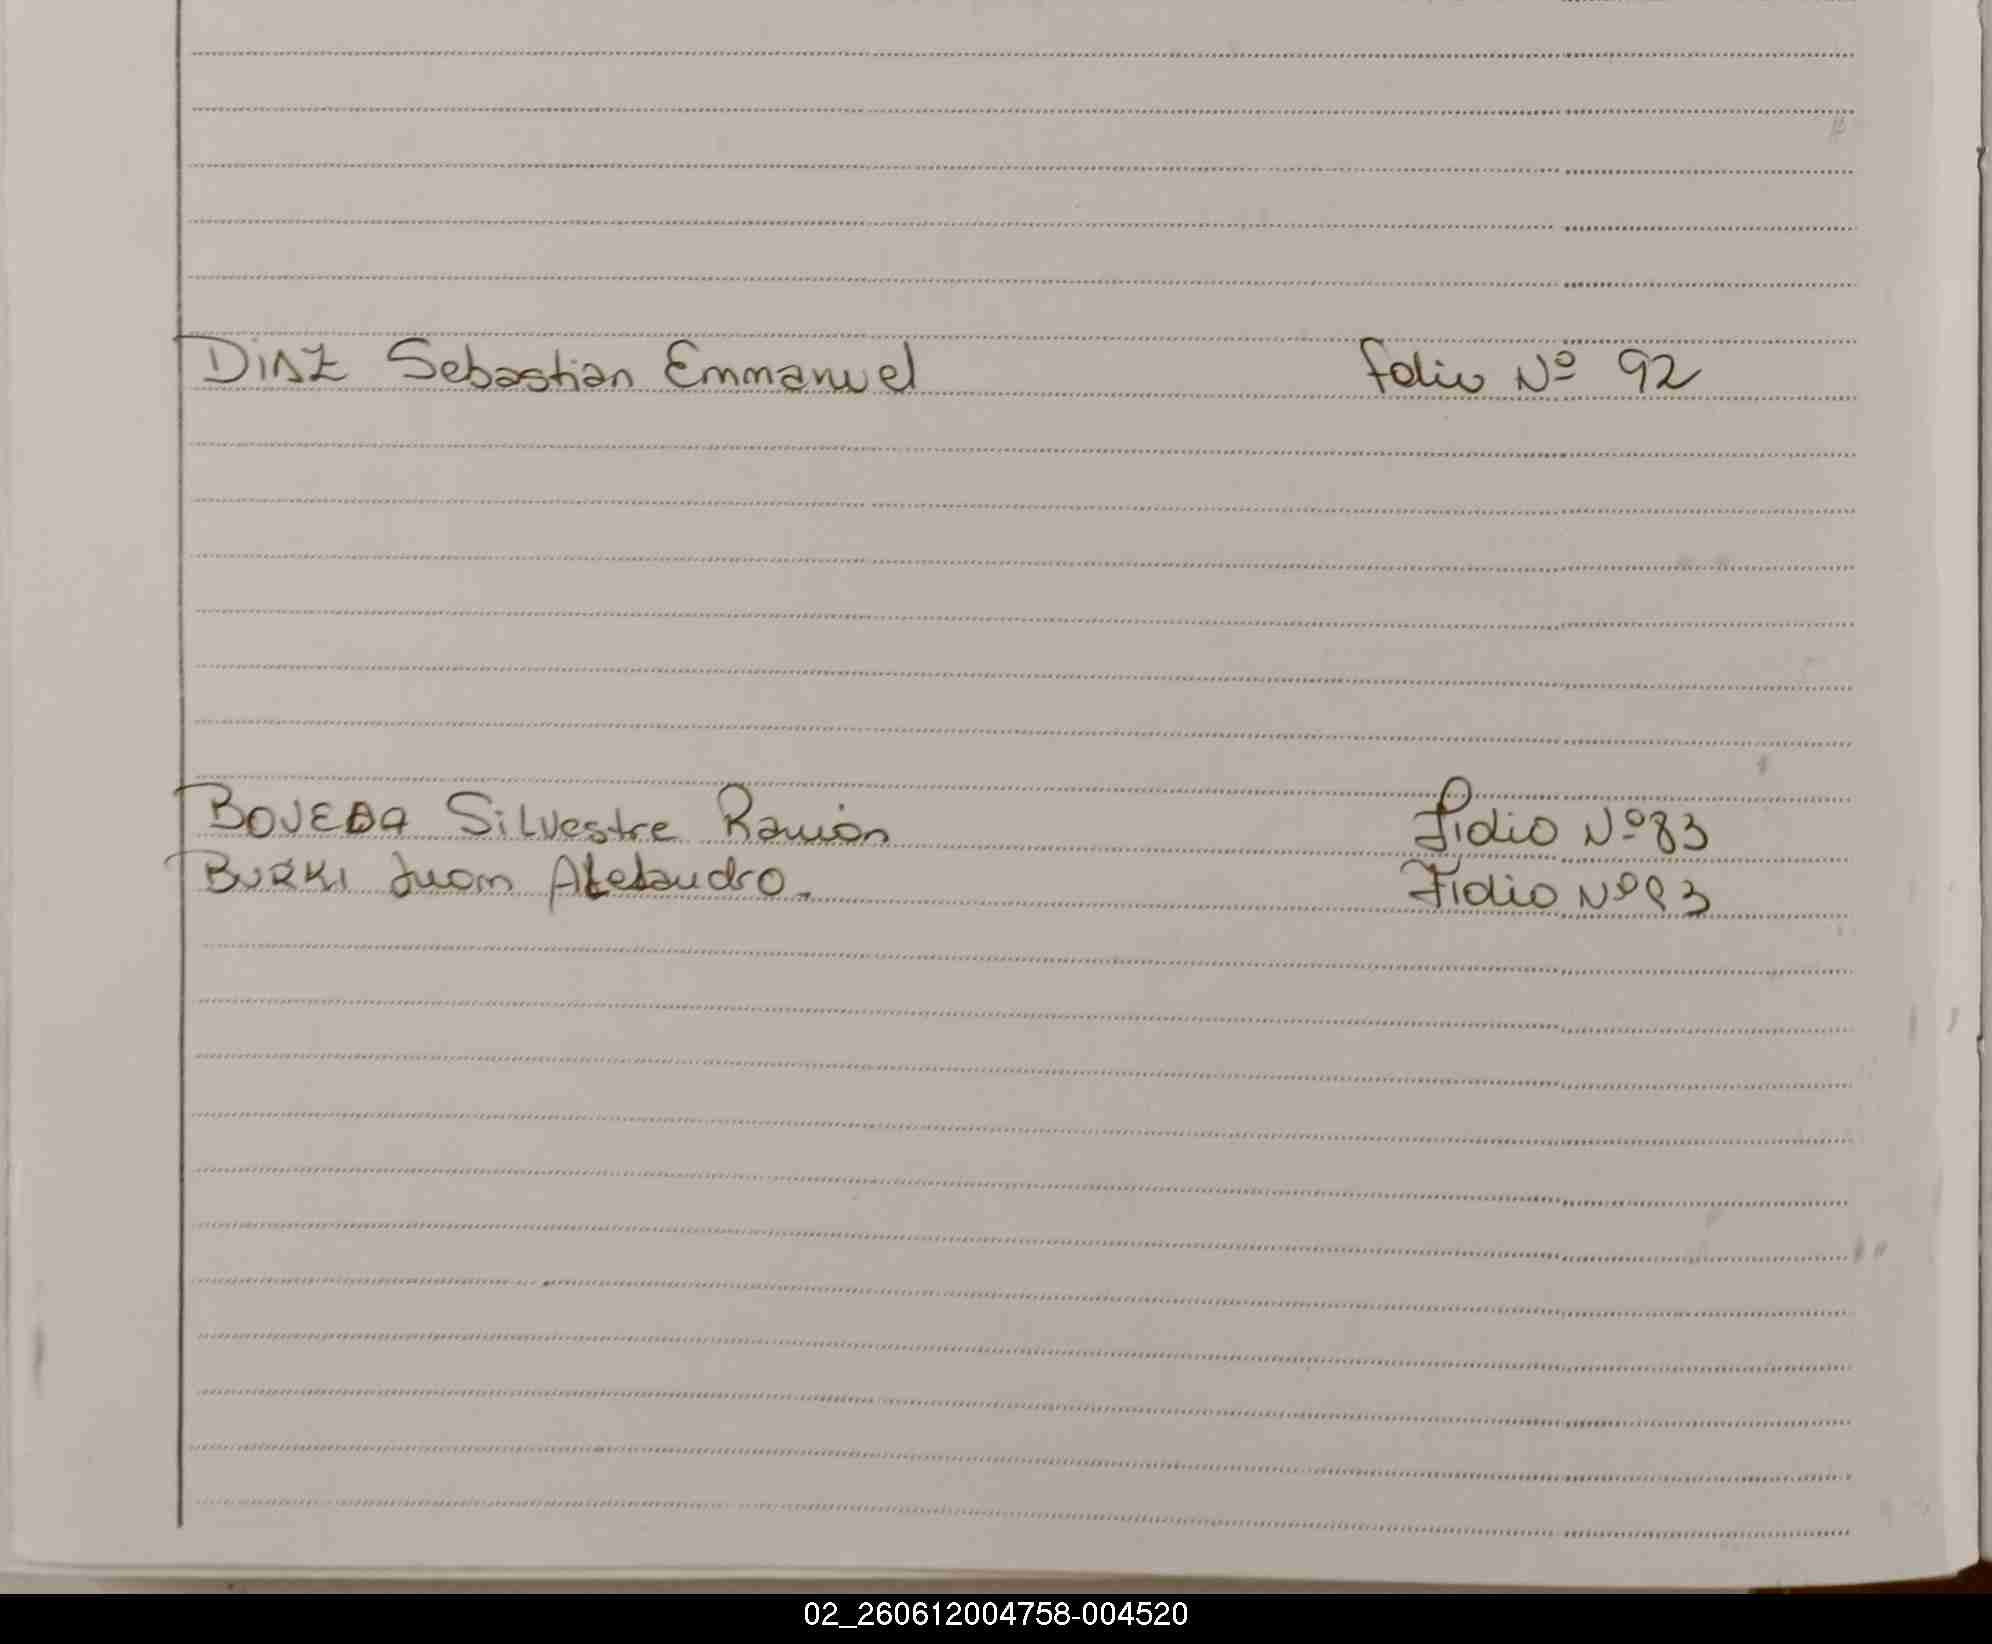 DiAZ Sebastian Emmanuel Folio Nº 92
BOVEDA Silvestre Ramón Folio Nº 83
BURKI Juan Alejandro. Folio Nº 93
02_260612004758-004520